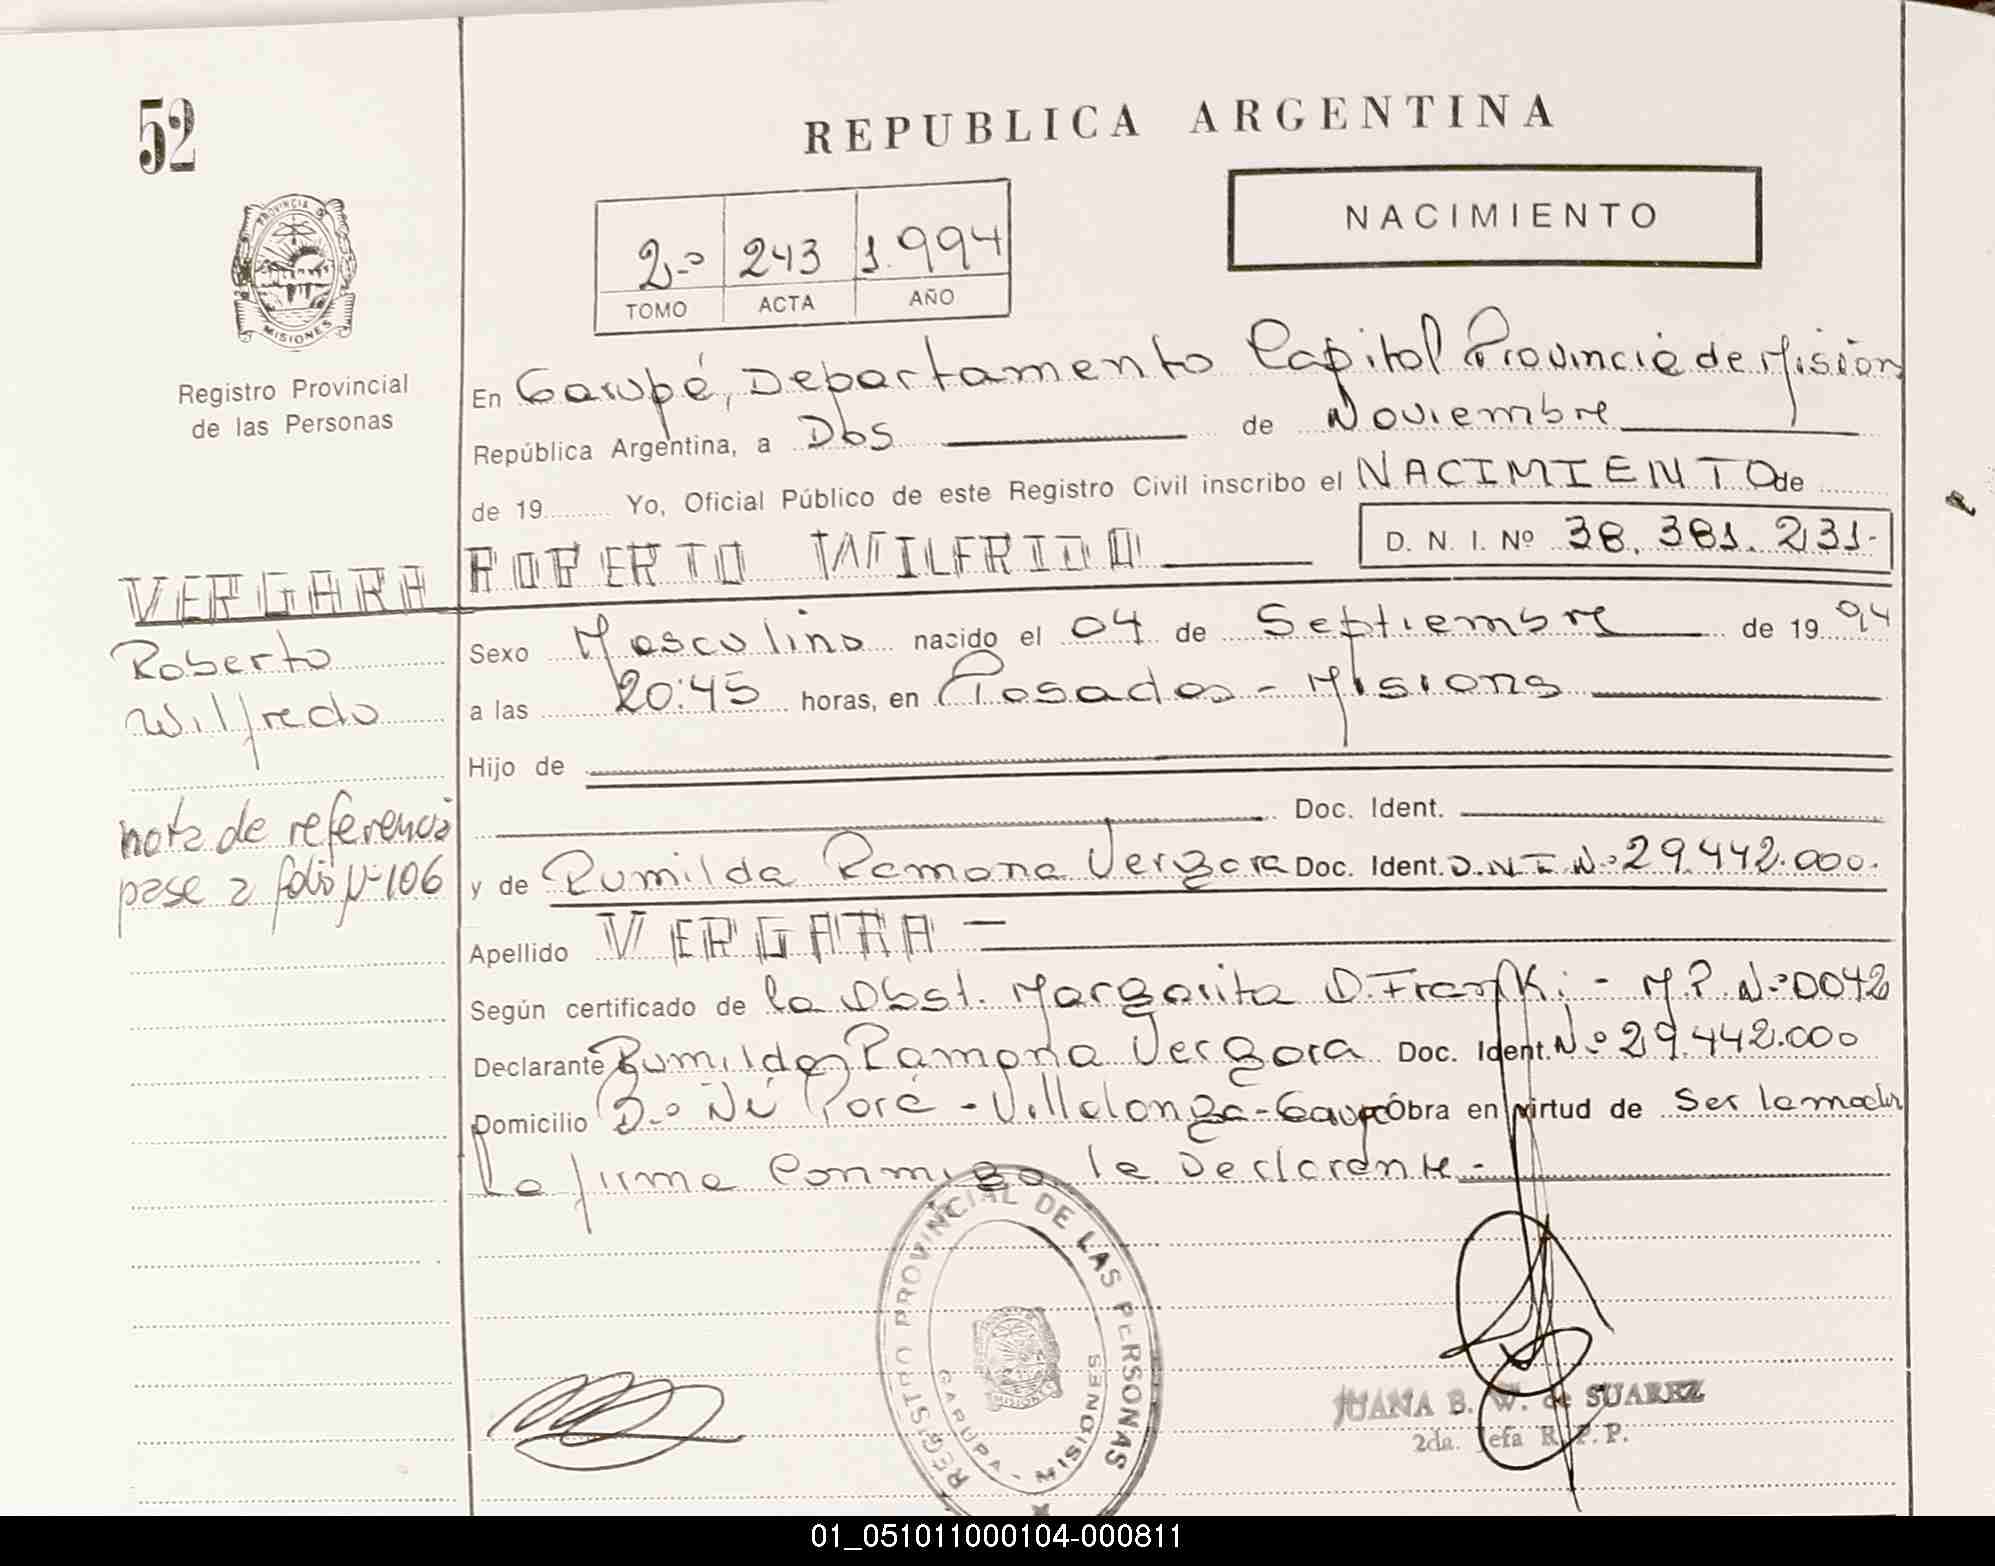 52
REPUBLICA ARGENTINA
NACIMIENTO
2º 243 1.994
TOMO ACTA AÑO
PROVINCIA DE
MISIONES
Registro Provincial
de las Personas
En Garupé, Departamento Capital Provincia de Mision
República Argentina, a Dos de Noviembre
de 19 Yo, Oficial Público de este Registro Civil inscribo el NACIMIENTO de
D. N. I. Nº 38.381.231.-
VERGARA ROBERTO WILFRIDO
Roberto
Wilfredo
Sexo Masculino nacido el 04 de Septiembre de 19 94
a las 20:45 horas, en Posadas - Misions
Hijo de
Doc. Ident.
nota de referencia
pase a folio Nº 106
y de Rumilda Ramona Vergara Doc. Ident. D.N.I. Nº 29.442.000.
Apellido VERGARA -
Según certificado de la Obst. Margarita D. Franki - M.P. Nº 0042
Declarante Rumilda Ramona Vergara Doc. Ident. Nº 29.442.000
Domicilio Bº Ñú Porá - Villalonga - Garupé Obra en virtud de Ser la madre
La firma Conmigo la Declarante -
REGISTRO PROVINCIAL DE LAS PERSONAS
GARUPA - MISIONES
JUANA B. W. de SUAREZ
2da. Jefa R. P. P.
01_051011000104-000811